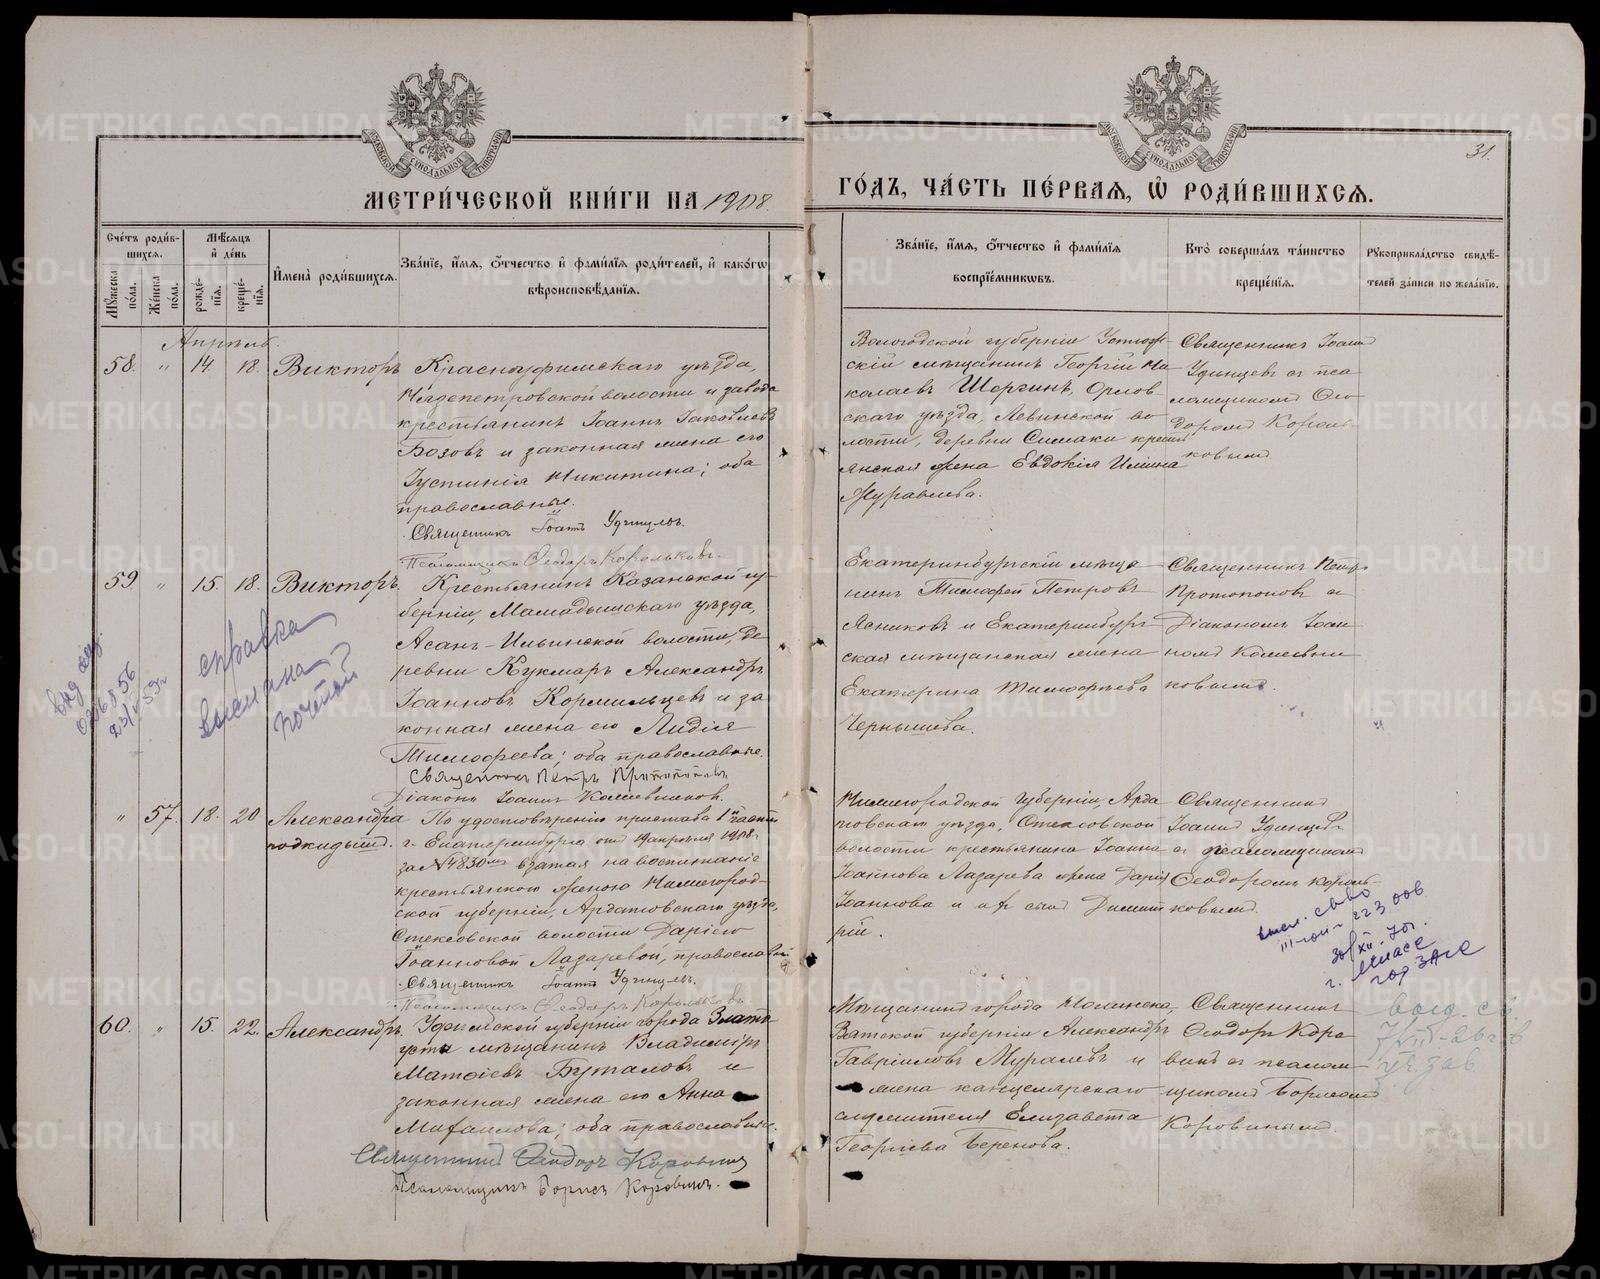 31.
МЕТРИ́ЧЕСКОЙ КНИ́ГИ НА 1908.
ГО́ДЪ, ЧА́СТЬ ПЕ́РВАѦ, Ѡ҆ РОДИ́ВШИХСѦ.
Сче́тъ роди́вшихсѧ.
Мꙋ́жеска по́ла.
Же́нска по́ла.
Мѣ́сѧцъ и҆ де́нь
рожде́нїѧ.
креще́нїѧ.
И҆мена̀ роди́вшихсѧ.
Зва́нїе, и҆́мѧ, ѻ҆́тчество и҆ фами́лїѧ роди́телей, и҆ како́гѡ
вѣроисповѣ́данїѧ.
Зва́нїе, и҆́мѧ, ѻ҆́тчество и҆ фами́лїѧ
воспрїе́мникѡвъ.
Кто̀ соверша́лъ та́инство
креще́нїѧ.
Рꙋкоприкла́дство свидѣ́-
телей за́писи по жела́нїю.
Апрѣль.
58. " 14. 18. Викторъ
Красноуфимскаго уѣзда,
волости и завода
крестьянинъ Іоаннъ Іаковлевъ
Бозовъ и законная жена его
Іустинія Никитина; оба
православные.
Священникъ Іоаннъ Удинцевъ.
Псаломщикъ Ѳеодоръ Корольковъ.
Вологодской губерніи Устюж-
скій мѣщанинъ Георгій Ни
колаевъ Шергинъ, Орлов-
скаго уѣзда, Левинской во
лости, деревни Симаки крестъ
янская жена Евдокія
Журавлева.
Священникъ Іоаннъ
Удинцевъ съ пса
ломщикомъ Ѳео
доромъ Король
ковымъ
59. " 15. 18. Викторъ.
Крестьянинъ Казанской гу-
берніи, Мамадышскаго уѣзда,
Асанъ-Ильинской волости, де
ревни Кукмаръ Александръ
Іоанновъ Кормильцевъ и за
конная жена его Лидія
Тимофеева; оба православные.
Священникъ Петръ Протопоповъ
Діаконъ Іоаннъ
Екатеринбургскій мѣща
нинъ Тимофей Петровъ
Ясниковъ и Екатеринбург
ская мѣщанская жена
Екатерина Тимофѣева
Чернышева.
Священникъ Петръ
Протопоповъ съ
Діакономъ Іоан
номъ
ковымъ.
справка
выслана
почтой
" 57. 18. 20 Александра
подкидышъ.
По удостовѣренію пристава 1й части
г. Екатеринбурга отъ 19 апрѣля 1908 г.
за № 4830 взятая на воспитаніе
крестьянскою женою Нижегород-
ской губерніи, Ардатовскаго уѣзда,
Стексовской волости Даріею
Іоанновой Лазаревой, православн
Священникъ Іоаннъ Удинцевъ.
Псаломщикъ Ѳеодоръ Корольковъ
Нижегородской Губерніи, Арда
товскаго уѣзда, Стексовской
волости крестьянина Іоанна
Іоаннова Лазарева жена Дарія
Іоаннова и сынъ Димит
рій.
Священникъ
Іоаннъ Удинцевъ
съ псаломщикомъ
Ѳеодоромъ Король-
ковымъ.
223006
г. Миасс
гор ЗАГС
60. " 15. 22. Александръ.
Уфимской губерніи города Злато
уста мѣщанинъ Владиміръ
Матѳіевъ Буталовъ и
законная жена его Анна
Михаилова; оба православные.
Священникъ Ѳеодоръ Коровинъ
Псаломщикъ Борисъ Коровинъ.
Мѣщанинъ города Нолинска,
Вятской губерніи Александръ
Гавріиловъ Муралевъ и
жена канцелярскаго
служителя Елизавета
Георгіева Беренова.
Священникъ
Ѳеодоръ Коро
винъ съ псалом
щикомъ Борисомъ
Коровинымъ.
METRIKI.GASO-URAL.RU